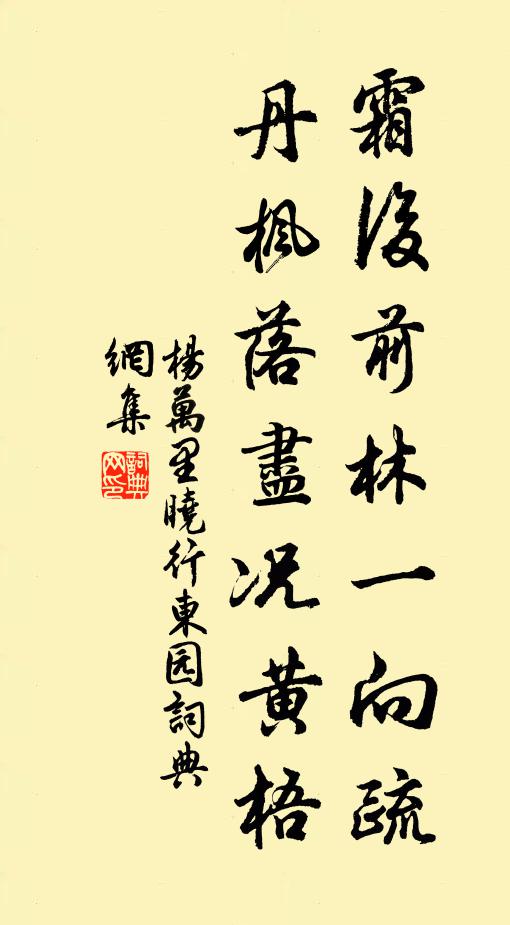 霜後前林一向疏
丹楓落盡况黄梧
楊萬里曉行東园詞典
網集
詞典網印